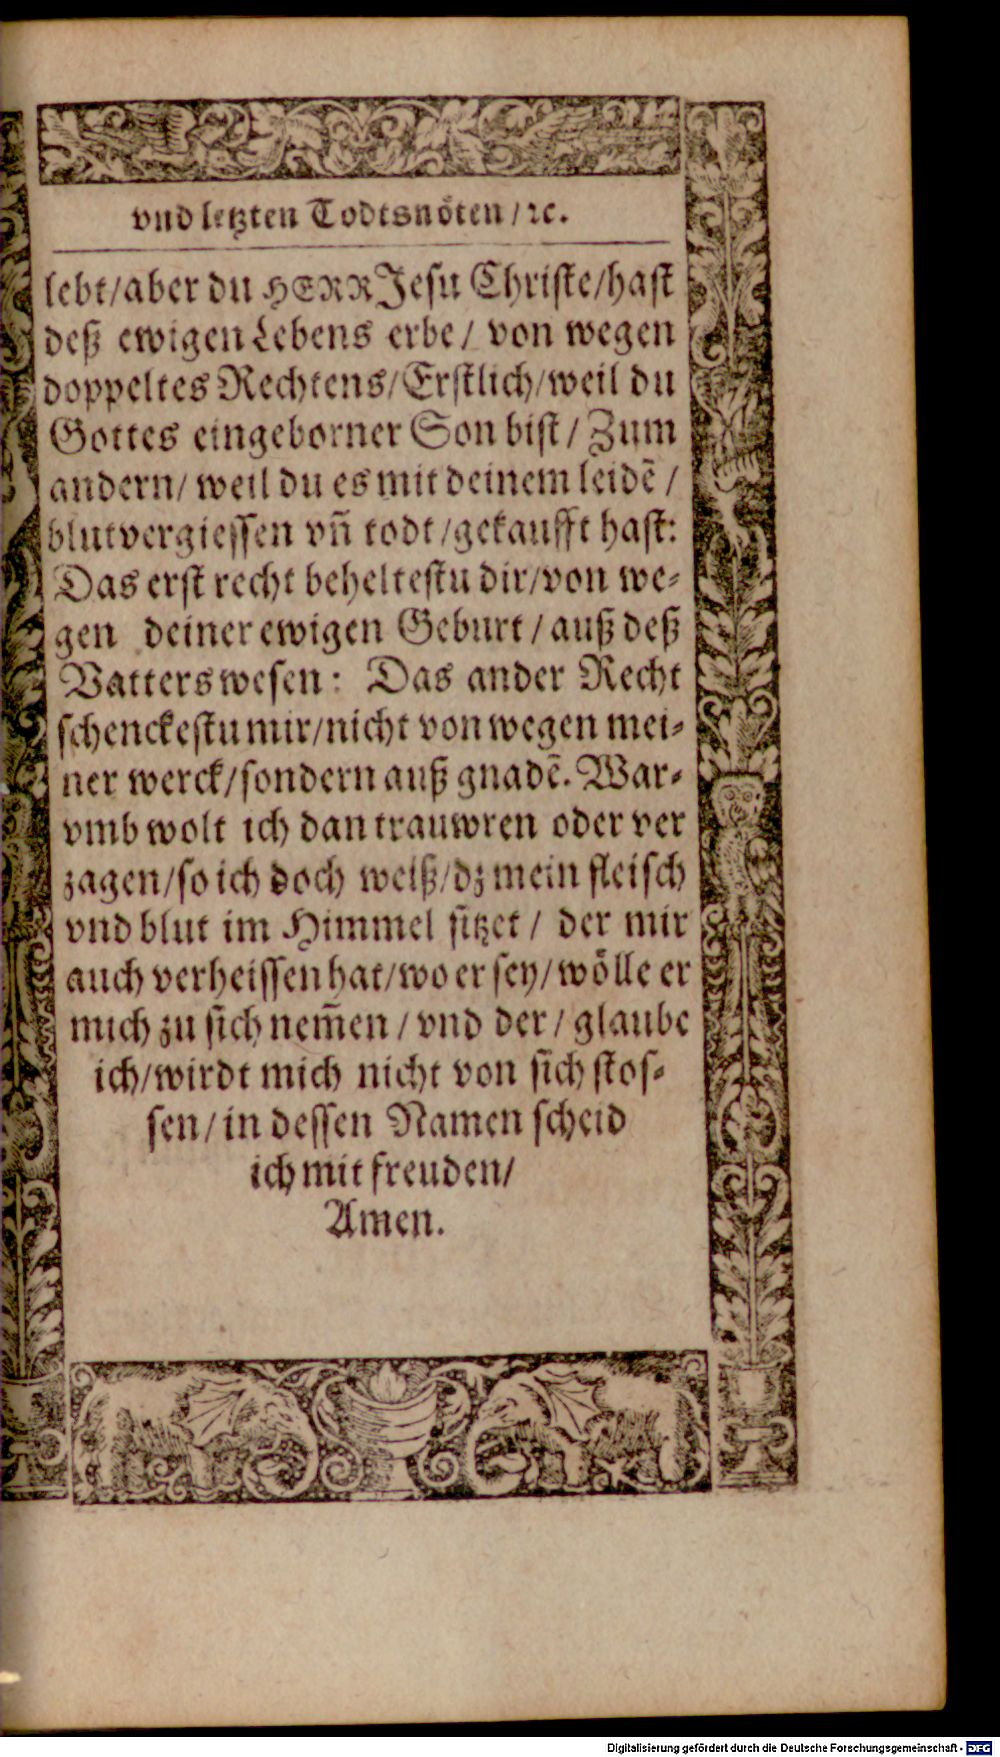 vnd letzten Todtsnöten / ꝛc.
lebt / aber du HERR Jesu Christe / hast
deß ewigen Lebens erbe / von wegen
doppeltes Rechtens / Erstlich / weil du
Gottes eingeborner Son bist / Zum
andern / weil du es mit deinem leidẽ /
blutvergiessen vñ todt / gekaufft hast:
Das erst recht beheltestu dir / von we⸗
gen deiner ewigen Geburt / auß deß
Vatters wesen: Das ander Recht
schenckestu mir / nicht von wegen mei⸗
ner werck / sondern auß gnadẽ. War⸗
vmb wolt ich dan trauwren oder ver
zagen / so ich doch weiß / dz mein fleisch
vnd blut im Himmel sitzet / der mir
auch verheissen hat / wo er sey / wölle er
mich zu sich nem̃en / vnd der / glaube
ich / wirdt mich nicht von sich stos⸗
sen / in dessen Namen scheid
ich mit freuden /
Amen.
Digitalisierung gefördert durch die Deutsche Forschungsgemeinschaft - DFG